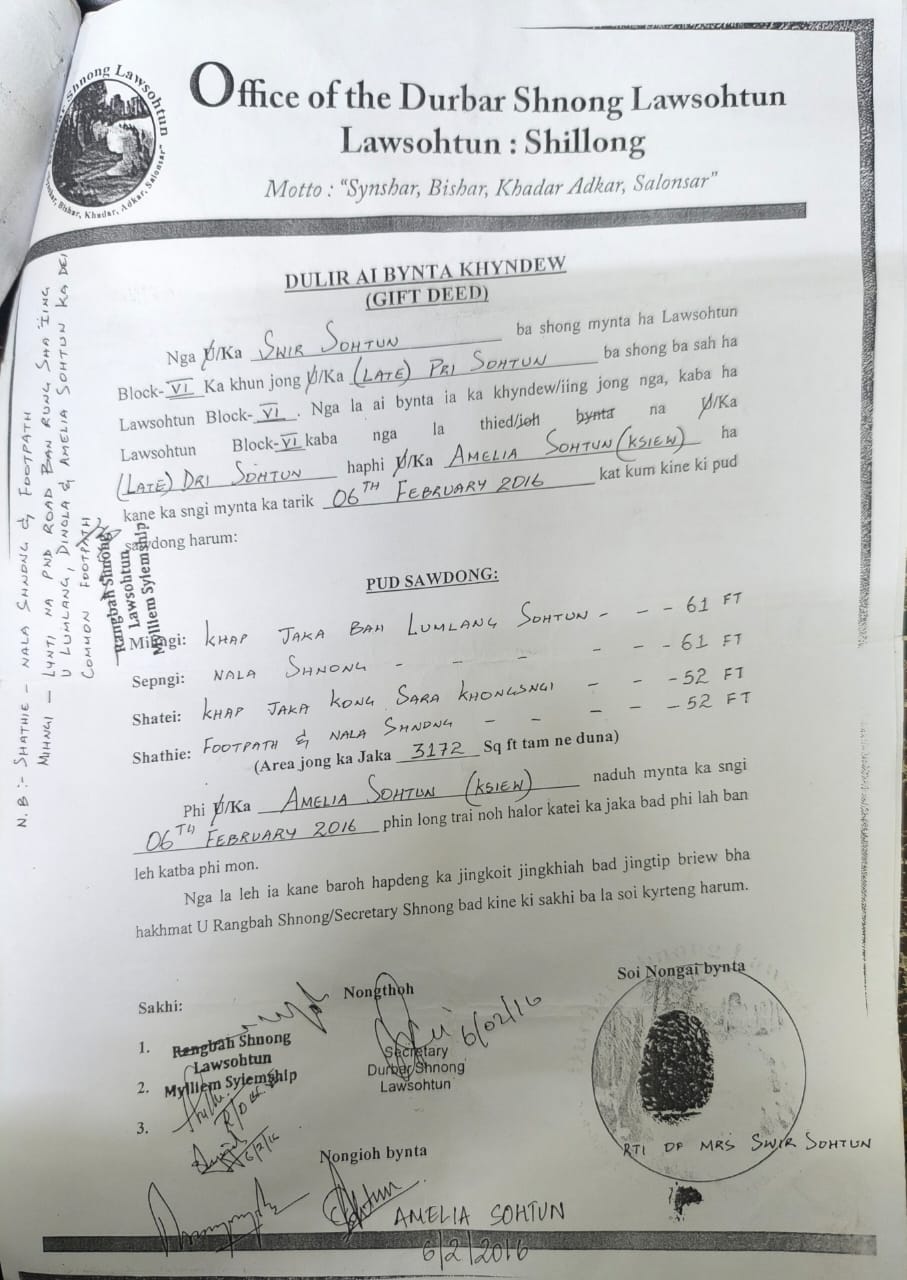 Shnong Lawsohtun
Bishar, Khadar, Adkar, Salonsar"
Office of the Durbar Shnong Lawsohtun
Lawsohtun : Shillong
Motto : "Synshar, Bishar, Khadar Adkar, Salonsar"
DULIR AI BYNTA KHYNDEW
(GIFT DEED)
Nga U/Ka SWIR SOHTUN ba shong mynta ha Lawsohtun
Block-VI Ka khun jong U/Ka (LATE) PRI SOHTUN ba shong ba sah ha
Lawsohtun Block-VI. Nga la ai bynta ia ka khyndew/iing jong nga, kaba ha
Lawsohtun Block-VI kaba nga la thied/ioh bynta na U/Ka
(LATE) DRI SOHTUN haphi U/Ka AMELIA SOHTUN (KSIEW) ha
kane ka sngi mynta ka tarik 06TH FEBRUARY 2016 kat kum kine ki pud
sawdong harum:
PUD SAWDONG:
Mihngi: KHAP JAKA BAH LUMLANG SOHTUN - - - 61 FT
Sepngi: NALA SHNONG - - - - - - 61 FT
Shatei: KHAP JAKA KONG SARA KHONGSNGI - - - 52 FT
Shathie: FOOTPATH & NALA SHNONG - - - - - 52 FT
(Area jong ka Jaka 3172 Sq ft tam ne duna)
Phi U/Ka AMELIA SOHTUN (KSIEW) naduh mynta ka sngi
06TH FEBRUARY 2016 phin long trai noh halor katei ka jaka bad phi lah ban
leh katba phi mon.
Nga la leh ia kane baroh hapdeng ka jingkoit jingkhiah bad jingtip briew bha
hakhmat U Rangbah Shnong/Secretary Shnong bad kine ki sakhi ba la soi kyrteng harum.
N.B :- SHATHIE - NALA SHNONG & FOOTPATH
MIHNGI - LYNTI NA PWD ROAD BAN RUNG SHA IING
U LUMLANG, DINGLA & AMELIA SOHTUN KA DEI
COMMON FOOTPATH
Rangbah Shnong
Lawsohtun
Mylliem Syiemship
Sakhi:
Nongthoh
Soi Nongai bynta
1.
2.
3.
Rangbah Shnong
Lawsohtun
Mylliem Syiemship
6/02/16
Secretary
Durbar Shnong
Lawsohtun
6/2/16
RTI OF MRS SWIR SOHTUN
Nongioh bynta
AMELIA SOHTUN
6/2/2016